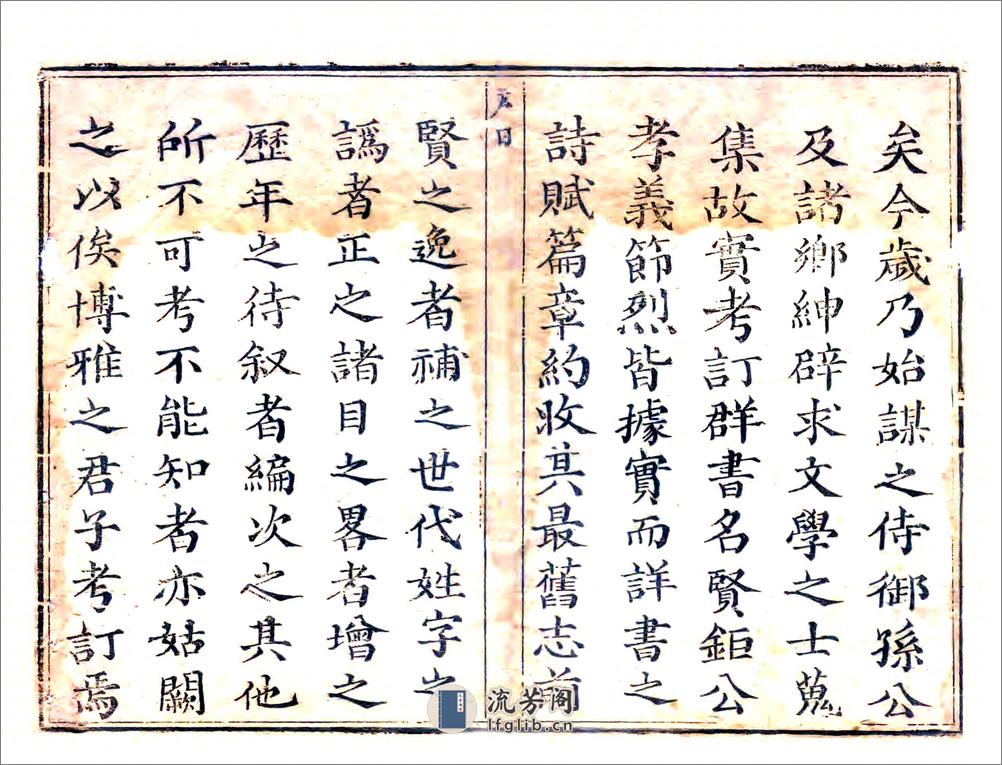 矣今歲乃始謀之侍御孫公
及諸鄉紳辟求文學之士蒐
集故實考訂群書名賢鉅公
孝義節烈皆據實而詳書之
詩賦篇章約收其最舊志前
賢之逸者補之世代姓字之
譌者正之諸目之畧者增之
歷年之待叙者編次之其他
所不可考不能知者亦姑闕
之以俟博雅之君子考訂焉
流芳阁
lfglib.cn